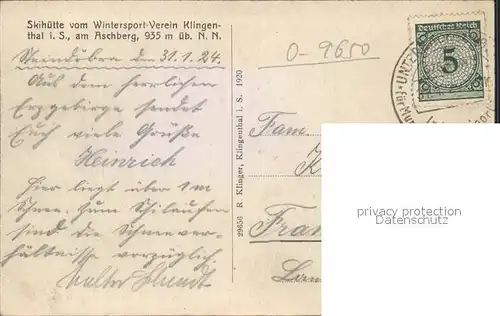 Skihütte vom Wintersport-Verein Klingen-
thal i. S., am Aschberg, 935 m üb. N. N.
Steindöbra den 31.1.24.
Aus dem herrlichen
Erzgebirge sendet
Euch viele Grüße
Heinrich
Hier liegt über 1 m
Schnee. Zum Schilaufen
sind die Schneever-
hältnisse vorzüglich.
Walter
29656 R. Klinger, Klingenthal i. S. 1920
0-9650
Deutsches Reich
5
UNTER
Fam.
K
Fran
privacy protection
www.oldthing.com